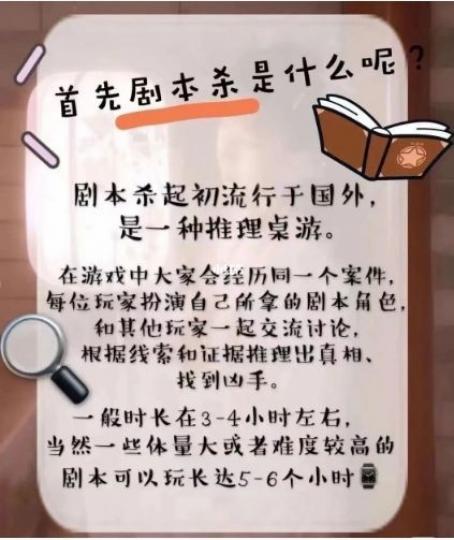 首先剧本杀是什么呢?
剧本杀起初流行于国外,
是一种推理桌游。
在游戏中大家会经历同一个案件,
每位玩家扮演自己所拿的剧本角色,
和其他玩家一起交流讨论,
根据线索和证据推理出真相、
找到凶手。
一般时长在3-4小时左右,
当然一些体量大或者难度较高的
剧本可以玩长达5-6个小时